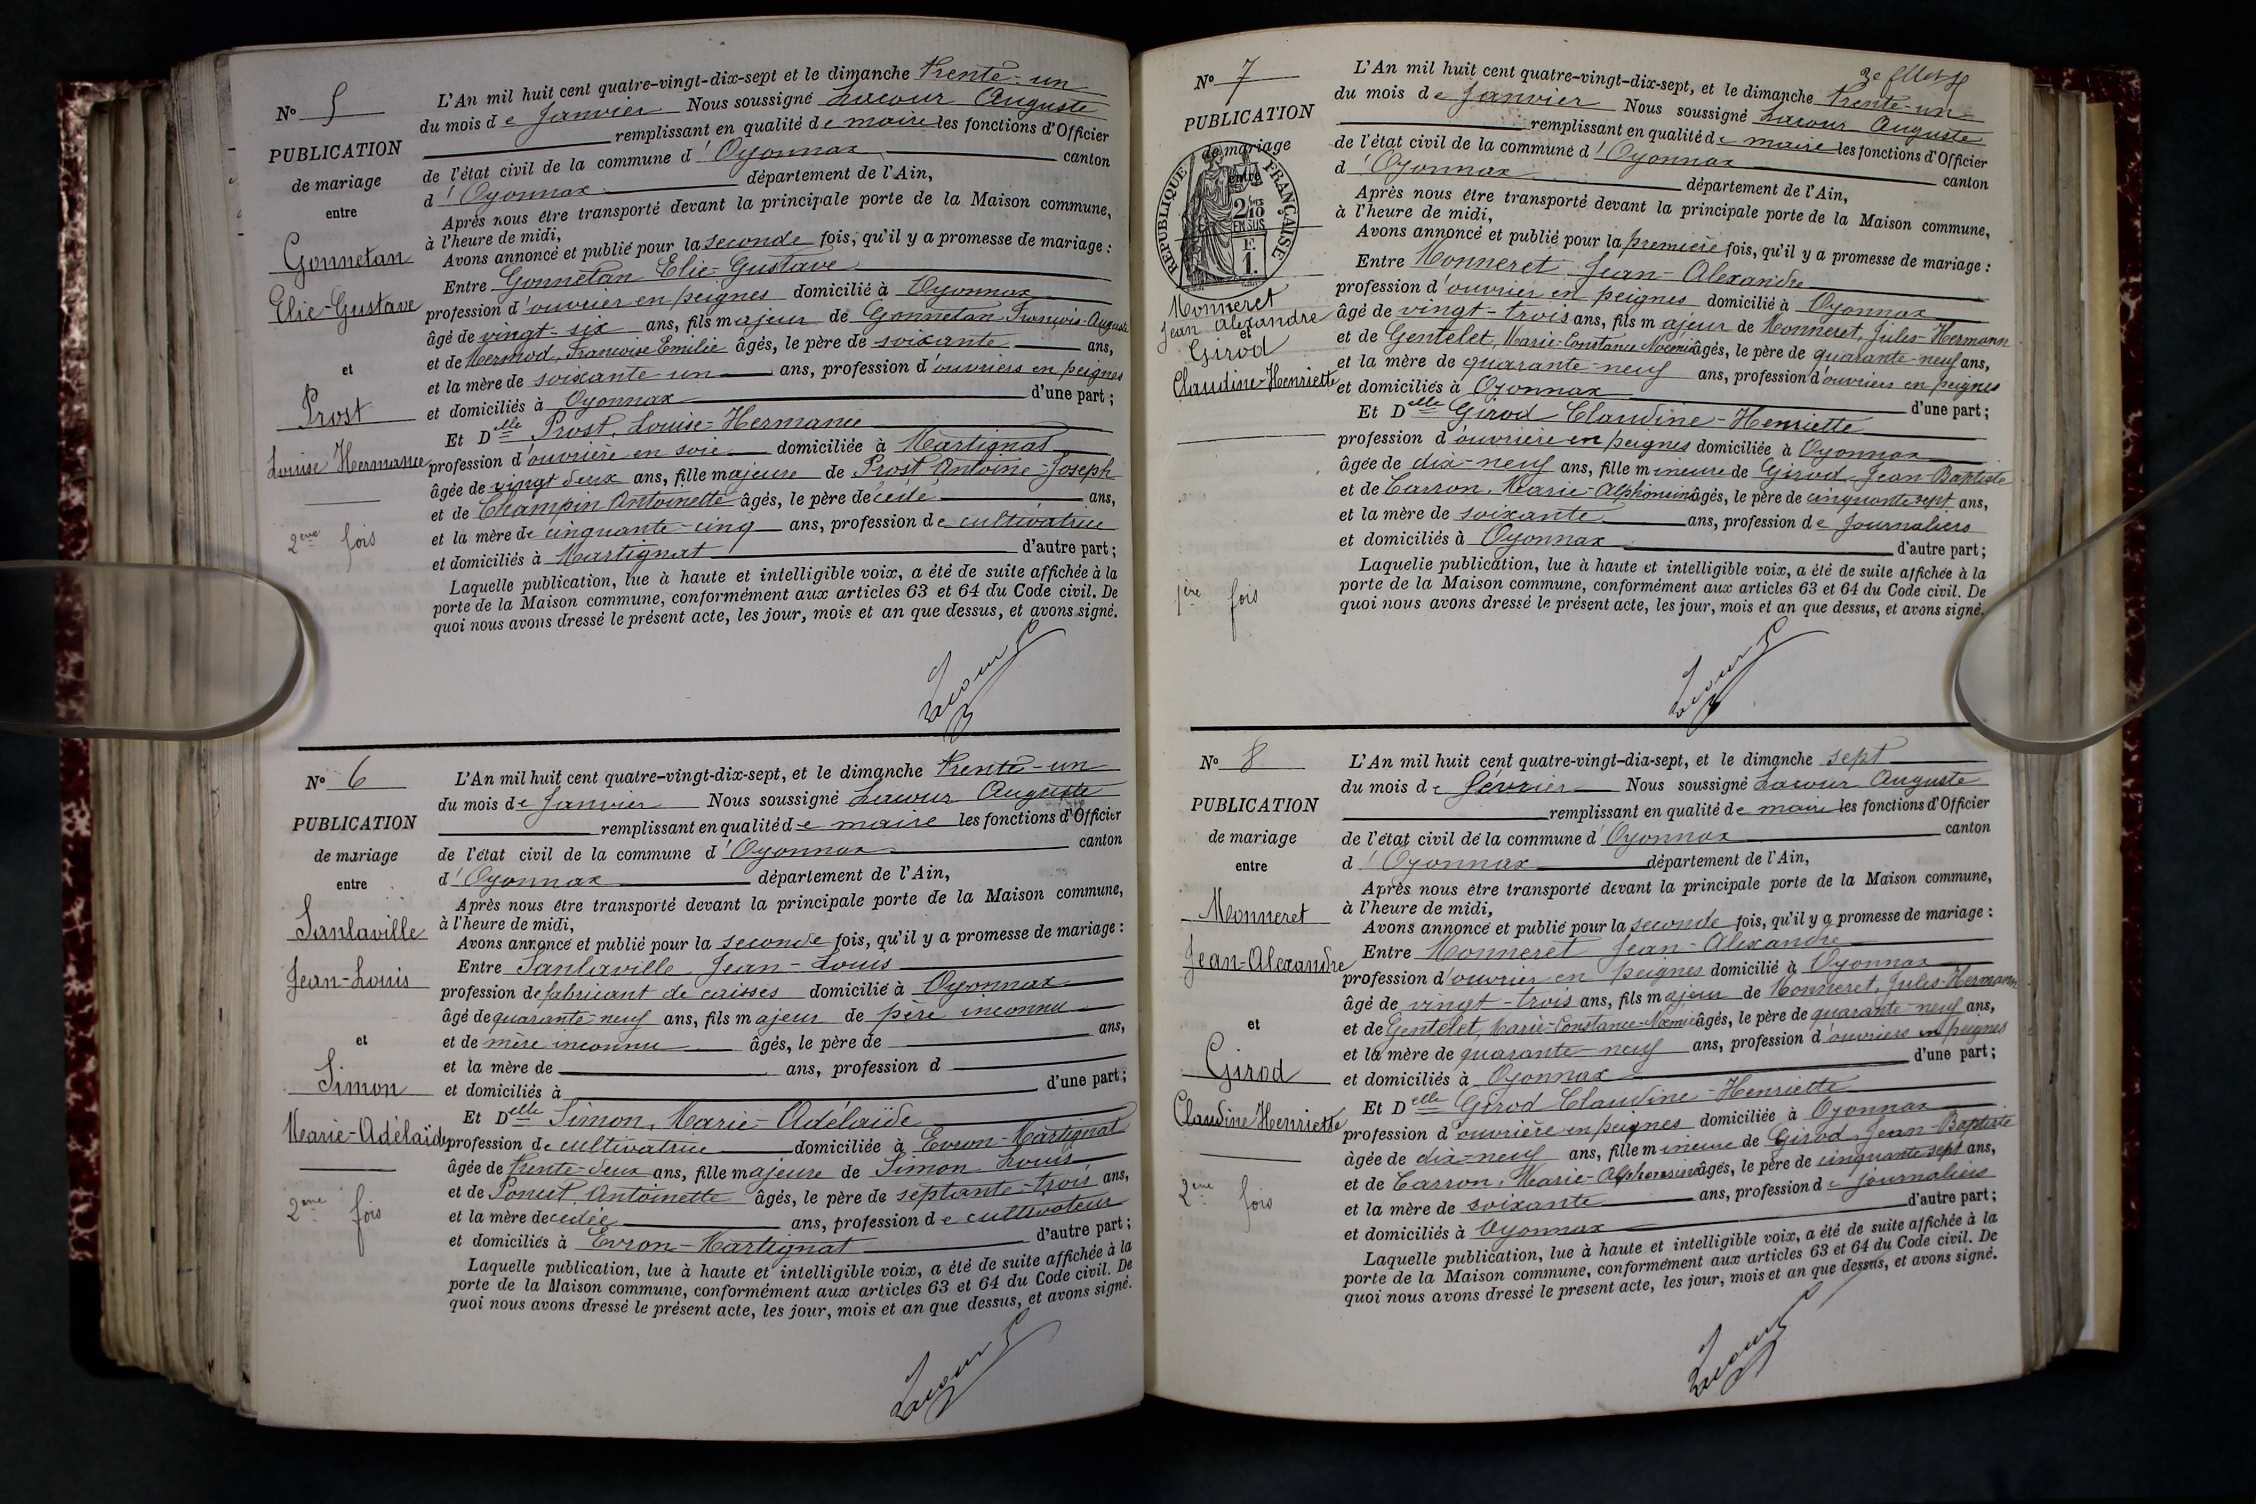 N° 5
PUBLICATION
de mariage
entre
Gonnetan
Elie-Gustave
et
Prost
Louise Hermance
2ème fois
L'An mil huit cent quatre-vingt-dix-sept et le dimanche trente-un
du mois de Janvier Nous soussigné Lacour Auguste
remplissant en qualité de maire les fonctions d'Officier
de l'état civil de la commune d'Oyonnax canton
d'Oyonnax département de l'Ain,
Après nous être transporté devant la principale porte de la Maison commune,
à l'heure de midi,
Avons annoncé et publié pour la seconde fois, qu'il y a promesse de mariage :
Entre Gonnetan Elie-Gustave
profession d'ouvrier en peignes domicilié à Oyonnax
âgé de vingt-six ans, fils majeur de Gonnetan François-Auguste
et de Mermod, Françoise Emilie âgés, le père de soixante ans,
et la mère de soixante un ans, profession d'ouvriers en peignes
et domiciliés à Oyonnax d'une part ;
Et Delle Prost, Louise-Hermance
profession d'ouvrière en soie domiciliée à Martignat
âgée de vingt deux ans, fille majeure de Prost Antoine-Joseph
et de Champin Antoinette âgés, le père décédé ans,
et la mère de cinquante-cinq ans, profession de cultivatrice
et domiciliés à Martignat d'autre part ;
Laquelle publication, lue à haute et intelligible voix, a été de suite affichée à la
porte de la Maison commune, conformément aux articles 63 et 64 du Code civil. De
quoi nous avons dressé le présent acte, les jour, mois et an que dessus, et avons signé.
Lacour
N° 6
PUBLICATION
de mariage
entre
Sanlaville
Jean-Louis
et
Simon
Marie-Adélaïde
2ème fois
L'An mil huit cent quatre-vingt-dix-sept, et le dimanche trente-un
du mois de Janvier Nous soussigné Lacour Auguste
remplissant en qualité de maire les fonctions d'Officier
de l'état civil de la commune d'Oyonnax canton
d'Oyonnax département de l'Ain,
Après nous être transporté devant la principale porte de la Maison commune,
à l'heure de midi,
Avons annoncé et publié pour la seconde fois, qu'il y a promesse de mariage :
Entre Sanlaville Jean-Louis
profession de fabricant de caisses domicilié à Oyonnax
âgé de quarante-neuf ans, fils majeur de père inconnu
et de mère inconnue âgés, le père de ans,
et la mère de ans, profession d
et domiciliés à d'une part ;
Et Delle Simon, Marie-Adélaïde
profession de cultivatrice domiciliée à Evron-Martignat
âgée de trente-deux ans, fille majeure de Simon Louis
et de Poncet Antoinette âgés, le père de septante-trois ans,
et la mère décédée ans, profession de cultivateur
et domiciliés à Evron-Martignat d'autre part ;
Laquelle publication, lue à haute et intelligible voix, a été de suite affichée à la
porte de la Maison commune, conformément aux articles 63 et 64 du Code civil. De
quoi nous avons dressé le présent acte, les jour, mois et an que dessus, et avons signé.
Lacour
N° 7
PUBLICATION
de mariage
entre
RÉPUBLIQUE FRANÇAISE
2/10
EN SUS
F.
1.
Monneret
Jean Alexandre
et
Girod
Claudine-Henriette
1ère fois
L'An mil huit cent quatre-vingt-dix-sept, et le dimanche trente-un
du mois de Janvier Nous soussigné Lacour Auguste
remplissant en qualité de maire les fonctions d'Officier
de l'état civil de la commune d'Oyonnax canton
d'Oyonnax département de l'Ain,
Après nous être transporté devant la principale porte de la Maison commune,
à l'heure de midi,
Avons annoncé et publié pour la première fois, qu'il y a promesse de mariage :
Entre Monneret Jean-Alexandre
profession d'ouvrier en peignes domicilié à Oyonnax
âgé de vingt-trois ans, fils majeur de Monneret, Jules-Hermann
et de Gentelet, Marie-Constance Noémie âgés, le père de quarante-neuf ans,
et la mère de quarante-neuf ans, profession d'ouvriers en peignes
et domiciliés à Oyonnax d'une part ;
Et Delle Girod Claudine-Henriette
profession d'ouvrière en peignes domiciliée à Oyonnax
âgée de dix-neuf ans, fille mineure de Girod, Jean-Baptiste
et de Carron, Marie-Alphonsine âgés, le père de cinquante sept ans,
et la mère de soixante ans, profession de journaliers
et domiciliés à Oyonnax d'autre part ;
Laquelle publication, lue à haute et intelligible voix, a été de suite affichée à la
porte de la Maison commune, conformément aux articles 63 et 64 du Code civil. De
quoi nous avons dressé le présent acte, les jour, mois et an que dessus, et avons signé.
Lacour
N° 8
PUBLICATION
de mariage
entre
Monneret
Jean-Alexandre
et
Girod
Claudine Henriette
2ème fois
L'An mil huit cent quatre-vingt-dix-sept, et le dimanche sept
du mois de Février Nous soussigné Lacour Auguste
remplissant en qualité de maire les fonctions d'Officier
de l'état civil de la commune d'Oyonnax canton
d'Oyonnax département de l'Ain,
Après nous être transporté devant la principale porte de la Maison commune,
à l'heure de midi,
Avons annoncé et publié pour la seconde fois, qu'il y a promesse de mariage :
Entre Monneret Jean-Alexandre
profession d'ouvrier en peignes domicilié à Oyonnax
âgé de vingt-trois ans, fils majeur de Monneret, Jules-Hermann
et de Gentelet, Marie-Constance-Noémie âgés, le père de quarante-neuf ans,
et la mère de quarante-neuf ans, profession d'ouvriers en peignes
et domiciliés à Oyonnax d'une part ;
Et Delle Girod Claudine-Henriette
profession d'ouvrière en peignes domiciliée à Oyonnax
âgée de dix-neuf ans, fille mineure de Girod, Jean-Baptiste
et de Carron, Marie-Alphonsine âgés, le père de cinquante sept ans,
et la mère de soixante ans, profession de journaliers
et domiciliés à Oyonnax d'autre part ;
Laquelle publication, lue à haute et intelligible voix, a été de suite affichée à la
porte de la Maison commune, conformément aux articles 63 et 64 du Code civil. De
quoi nous avons dressé le présent acte, les jour, mois et an que dessus, et avons signé.
Lacour